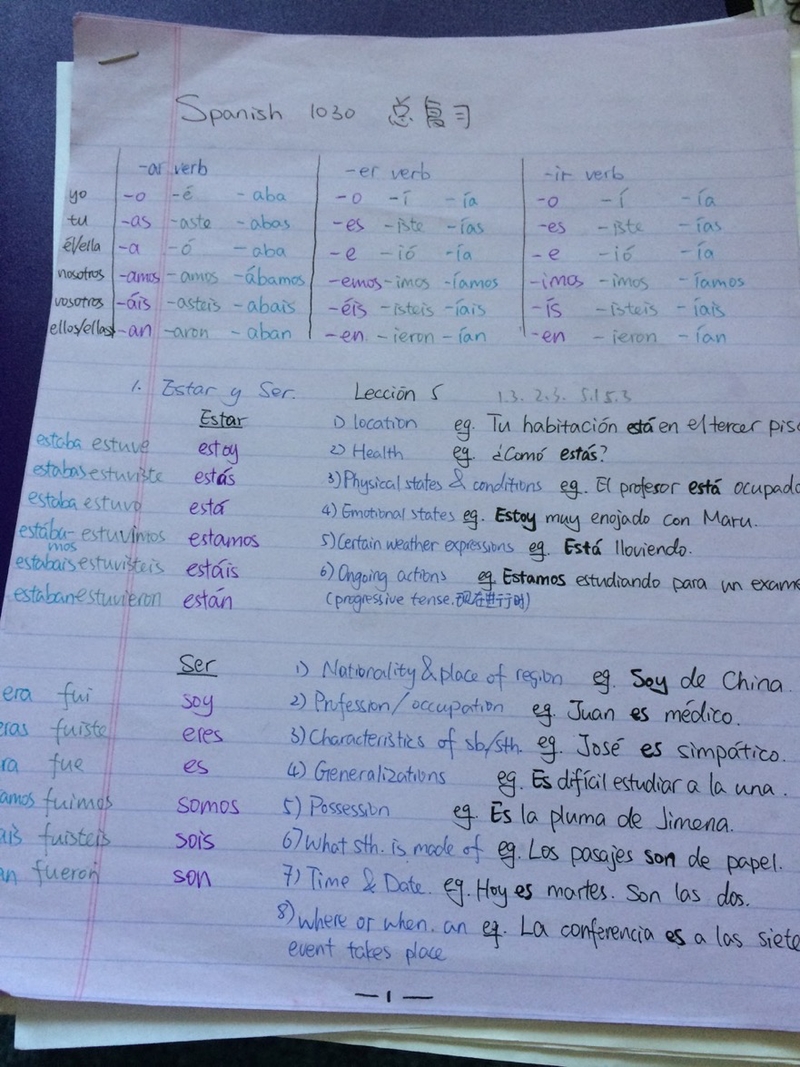 Spanish 1030 总复习
-ar verb -er verb -ir verb
yo -o -é -aba -o -í -ía -o -í -ía
tu -as -aste -abas -es -iste -ías -es -iste -ías
él/ella -a -ó -aba -e -ió -ía -e -ió -ía
nosotros -amos -amos -ábamos -emos -imos -íamos -imos -imos -íamos
vosotros -áis -asteis -abais -éis -isteis -íais -ís -isteis -íais
ellos/ellas -an -aron -aban -en -ieron -ían -en -ieron -ían
1. Estar y Ser. Lección 5 1.3. 2.3. 5.15.3
Estar 1) location eg. Tu habitación está en el tercer piso
estaba estuve estoy 2) Health eg. ¿Comó estás?
estabas estuviste estás 3) Physical states & conditions eg. El profesor está ocupado
estaba estuvo está 4) Emotional states eg. Estoy muy enojado con Maru.
estába- estuvimos estamos 5) Certain weather expressions eg. Está lloviendo.
mos
estabais estuvisteis estáis 6) Ongoing actions eg. Estamos estudiando para un exame
estaban estuvieron están (progressive tense. 现在进行时)
Ser 1) Nationality & place of region eg. Soy de China.
era fui soy 2) Profession/occupation eg. Juan es médico.
eras fuiste eres 3) Characteristics of sb/sth. eg. José es simpático.
ra fue es 4) Generalizations eg. Es difícil estudiar a la una.
amos fuimos somos 5) Possession eg. Es la pluma de Jimena.
ais fuisteis sois 6) What sth. is made of eg. Los pasajes son de papel.
an fueron son 7) Time & Date. eg. Hoy es martes. Son las dos.
8) where or when. an eg. La conferencia es a las siete
event takes place
— 1 —